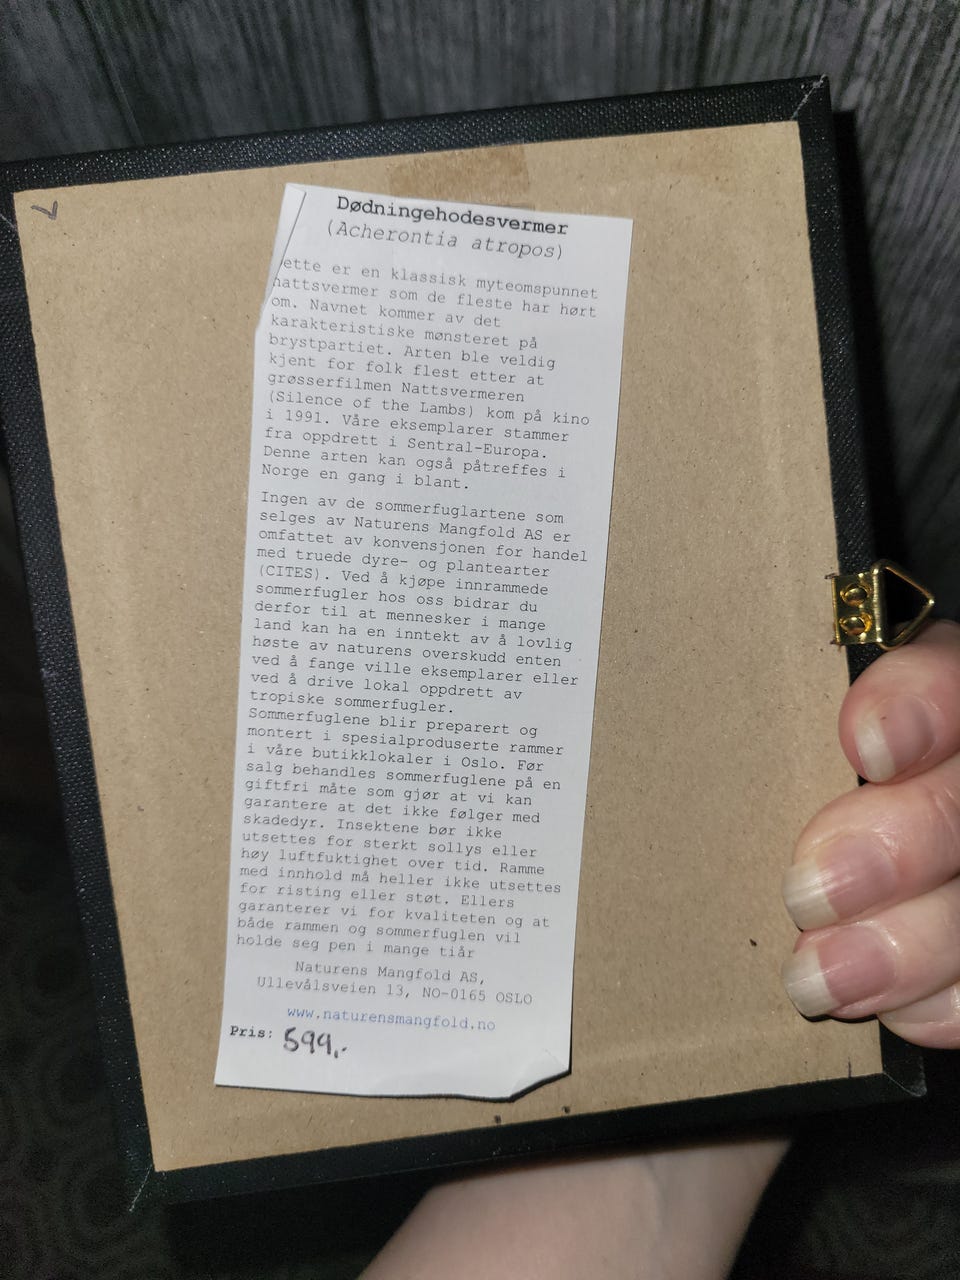 Dødningehodesvermer
(Acherontia atropos)
ette er en klassisk myteomspunnet
nattsvermer som de fleste har hørt
om. Navnet kommer av det
karakteristiske mønsteret på
brystpartiet. Arten ble veldig
kjent for folk flest etter at
grøsserfilmen Nattsvermeren
(Silence of the Lambs) kom på kino
i 1991. Våre eksemplarer stammer
fra oppdrett i Sentral-Europa.
Denne arten kan også påtreffes i
Norge en gang i blant.
Ingen av de sommerfuglartene som
selges av Naturens Mangfold AS er
omfattet av konvensjonen for handel
med truede dyre- og plantearter
(CITES). Ved å kjøpe innrammede
sommerfugler hos oss bidrar du
derfor til at mennesker i mange
land kan ha en inntekt av å lovlig
høste av naturens overskudd enten
ved å fange ville eksemplarer eller
ved å drive lokal oppdrett av
tropiske sommerfugler.
Sommerfuglene blir preparert og
montert i spesialproduserte rammer
i våre butikklokaler i Oslo. Før
salg behandles sommerfuglene på en
giftfri måte som gjør at vi kan
garantere at det ikke følger med
skadedyr. Insektene bør ikke
utsettes for sterkt sollys eller
høy luftfuktighet over tid. Ramme
med innhold må heller ikke utsettes
for risting eller støt. Ellers
garanterer vi for kvaliteten og at
både rammen og sommerfuglen vil
holde seg pen i mange tiår
Naturens Mangfold AS,
Ullevålsveien 13, NO-0165 OSLO
www.naturensmangfold.no
Pris: 599,-